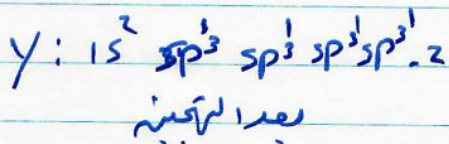 y: 1s² sp³¹ sp³¹ sp³¹ sp³¹ .2
بعد التهجين